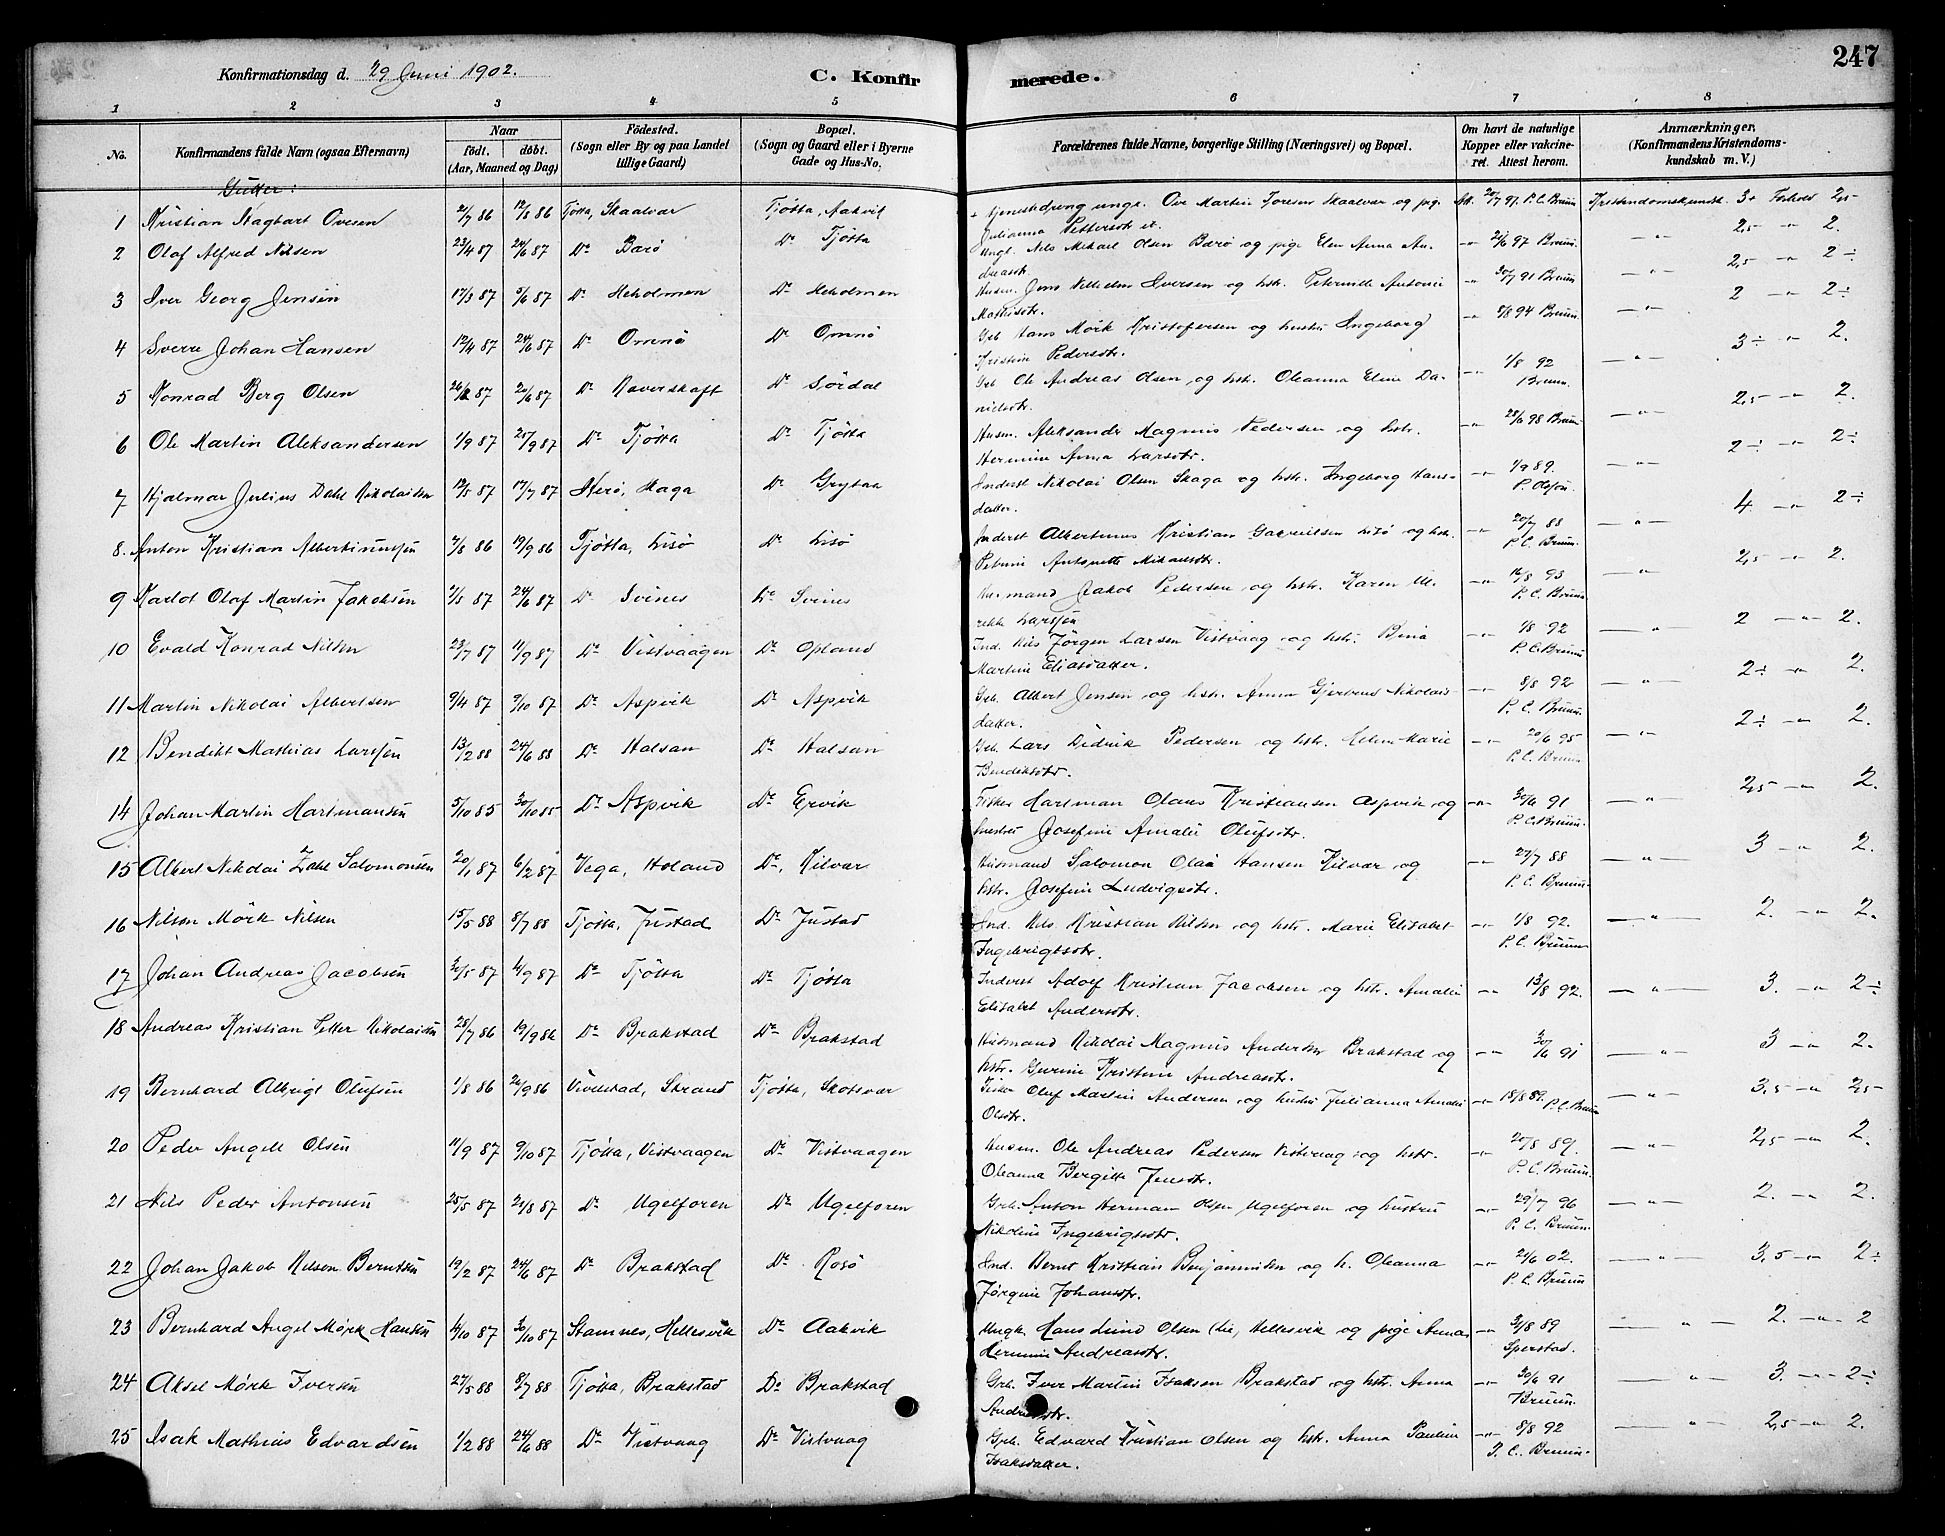 247
Konfirmationsdag d. 29 Juni 1902.
C. Konfirmerede.
1 2 3 4 5 6 7 8
No. Konfirmandens fulde Navn (ogsaa Efternavn) Naar født. døbt. (Aar, Maaned og Dag) Fødested. (Sogn eller By og paa Landet tillige Gaard) Bopæl. (Sogn og Gaard eller i Byerne Gade og Hus-No. Forældrenes fulde Navne, borgerlige Stilling (Næringsvei) og Bopæl. Om havt de naturlige Kopper eller vakcineret. Attest herom. Anmærkninger. (Konfirmandens Kristendomskundskab m. V.)
Gutter:
1 Kristian Magbart Ovesen 2/7 86 12/8 86 Tjøtta, Skaalvar Tjøtta, Aakvik tjenestedreng ungk. Ove Martin Joresen Skaalvar og pig. Att. 20/7 91. P.C. Bruun Kristendomskundsk. 3+ Forhold 2,5-
Julianna Pettersdt.
2 Olaf Alfred Nilsen 23/4 87 24/6 87 Do Barø Do Tjøtta Ungk. Nils Mikael Olsen Barø og pige Elen Anna An- 21/6 97 Bruun. 2,5 - 2.
dreasdt.
3 Iver Georg Jensen 17/3 87 9/6 87 Do Heholmen Do Heholmen Husm. Jens Vilhelm Iversen og hstr. Peternille Antonie 30/7 91 Bruun 2,5 - 2÷
Mathisdtr.
4 Sverre Johan Hansen 12/4 87 24/6 87 Do Omnø Do Omnø Grb Hans Mörk Kristofersen og hustru Ingeborg 8/8 94 Bruun. 2 - 2÷
Kristine Pedersdtr.
5 Konrad Berg Olsen 26/2 87 20/6 87 Do Kaverskaft Do Sørdal Grb Ole Andreas Olsen, og hstr. Oleanna Eline Da- 1/8 92 Bruun. 3÷ - 2.
nielsdtr.
6 Ole Martin Aleksandersen 1/9 87 25/9 87 Do Tjøtta Do Tjøtta Husm. Aleksander Magnus Pedersen og hstr. 28/6 98 Bruun 2,5 - 2.
Hermine Anna Larsdtr.
7 Hjalmar Julius Dahl Nikolaisen 12/5 87 17/7 87 Herø, Haga Do Grytaa Inderst Nikolai Olsen Skaga og hstr. Ingeborg Hans- 1/9 89. P. Olsen. 2÷ - 2÷
datter.
8. Anton Kristian Albertinussen 7/8 86 19/9 86 Tjøtta, Lisø Do Lisø Inderst Albertinus Kristian Gabrielsen Lisø og hstr. 20/7 88 P.C. Bruun. 4 - 2÷
Petrine Antonette Mikalsdtr.
9 Karlot Olaf Martin Jakobsen 7/5 87 24/6 87 Do Svines Do Svines Husmand Jakob Pedersen og hstr. Karen Ul- 16/8 93 P.C. Bruun. 2,5 - 2.
rikke Larssen
10 Evald Konrad Nilsen 23/7 87 11/9 87 Do Vistvaagen Do Opland Ind. Nils Jørgen Larsen Vistvaag og hstr. Bina 1/8 92 P.C. Bruun 2 - 2.
Martine Eliasdatter.
11 Martin Nikolai Albertsen 9/4 87 9/10 87 Do Aspvik Do Aspvik Grb. Albert Jensen og hstr. Anna Gjertrud Nikolais- 8/8 92 P.C. Bruun. 2÷ - 2.
datter.
12 Bendikt Mathias Larssen 13/2 88 24/6 88 Do Halsan Do Halsan Grb. Lars Didrik Pedersen og hstr. Ellen Marie 20/6 95 P.C. Bruun 2÷ - 2.
Bendiksdtr.
14 Johan Martin Hartmansen 5/10 85 30/10 85 Do Aspvik Do Ervik Fisker Hartman Olaus Kristiansen Aspvik og 30/6 91 P.C. Bruun. 2,5 - 2.
hustru Josefine Amalie Olufsdtr.
15 Albert Nikolai Zahl Salomonsen 20/1 87 6/2 87 Vega, Holand Do, Kilvar Husmand Salomon Olai Hansen Kilvar og 27/7 88 P.C. Bruun. 3 - 2.
hstr. Josefine Ludvigsdtr.
16 Nilson Mörk Nilsen 15/5 88 8/7 88 Tjøtta, Justad Do Justad Ind. Nils Kristian Nilsen og hstr. Marie Elisabet 1/8 92. P.C. Bruun 2. - 2.
Ingebrigtsdtr.
17 Johan Andreas Jacobsen 30/5 87 4/9 87 Do Tjøtta Do Tjøtta Inderst Adolf Kristian Jacobsen og hstr. Amalie 13/8 92. 3. - 2÷
Elisabet Andersdtr.
18 Andreas Kristian Petter Nikolaisen 28/7 86 19/9 86 Do Brakstad Do Brakstad Husmand Nikolai Magnus Andersen Brakstad og 30/6 91 3 - 2.
hstr. Gurine Kristine Andreasdtr.
19 Bernhard Albrigt Olufsen 1/8 86 26/9 86 Vivelstad, Strand Tjøtta, Skotsvær Fisker Oluf Martin Andersen og hustru Julianna Amalie 18/8 89. P.C. Bruun 3,5 - 2,5
Olsdtr.
20 Peder Angell Olsen 11/9 87 9/10 87 Tjøtta, Vistvaagen Do Vistvaagen Husm. Ole Andreas Pedersen Vistvaag og hstr. 20/8 89. P.C. Bruun. 2,5 - 2.
Oleanna Bergitte Jensdtr.
21 Nils Peder Antonsen 25/5 87 21/8 87 Do Ugelforen Do Ugelforen Grb. Anton Herman Olsen Ugelforen og hustru 29/7 96 P.C. Bruun. 2. - 2.
Nikoline Ingebrigtsdtr.
22 Johan Jakob Nilsen Berntsen 19/2 87 24/6 87 Do Brakstad Do Rosø Ind. Bernt Kristian Benjaminsen og h. Oleanna 21/6 02. P.C. Bruun 3,5 - 2÷
Jørgine Johansdtr.
23 Bernhard Angel Mørk Hansen 4/10 87 30/10 87 Stamnes, Hellesvik Do Aakvik Ungk. Hans Lund Olsen Lie, Hellesvik og pige Anna 31/8 89 Sperstad. 2. - 2
Hermine Andreasdtr.
24 Aksel Mørk Iversen 27/5 88 8/7 88 Tjøtta, Brakstad Do Brakstad Grb. Iver Martin Isaksen Brakstad og hstr. Anna 30/6 91 Bruun. 3. - 2÷
Andreasdtr.
25 Isak Mathias Edvardsen 1/2 88 24/6 88 Do Vistvaag Do Vistvaag Grb. Edvard Kristian Olsen og hstr. Anna Pauline 8/8 92 P.C. Bruun. 2,5 - 2.
Isaksdatter.